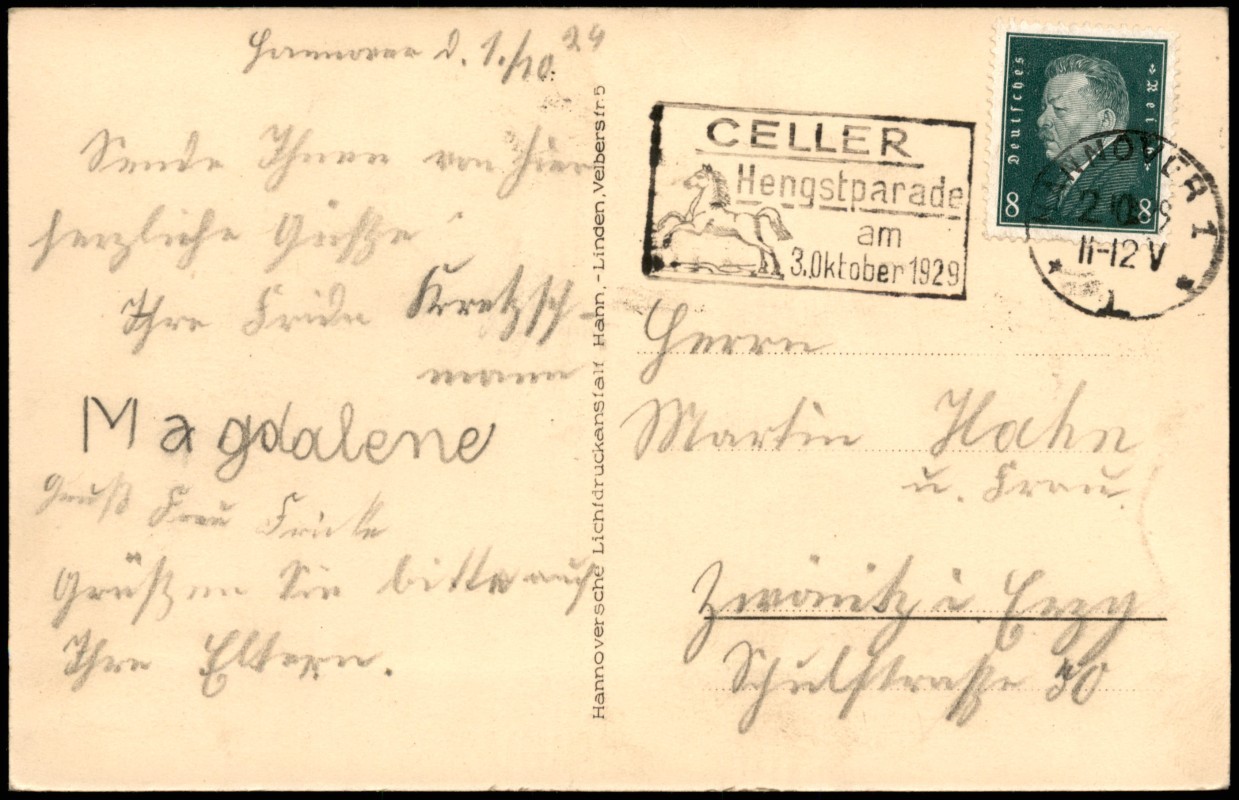 Hannover d. 1./10. 29
Sende Ihnen von hier
herzliche Grüße
Ihre Frida Kretzsch-
mann
Magdalene
Gruß Frau Fricke
Grüßen Sie bitte auch
Ihre Eltern.
Hannoversche Lichtdruckanstalt Hann.-Linden, Velberstr. 5
CELLER
Hengstparade
am
3. Oktober 1929
Deutsches Reich
8 8
HANNOVER 1
2.10.29
11-12 V
Herrn
Martin Hahn
u. Frau.
Zwönitz i Erzg
Schulstraße 50